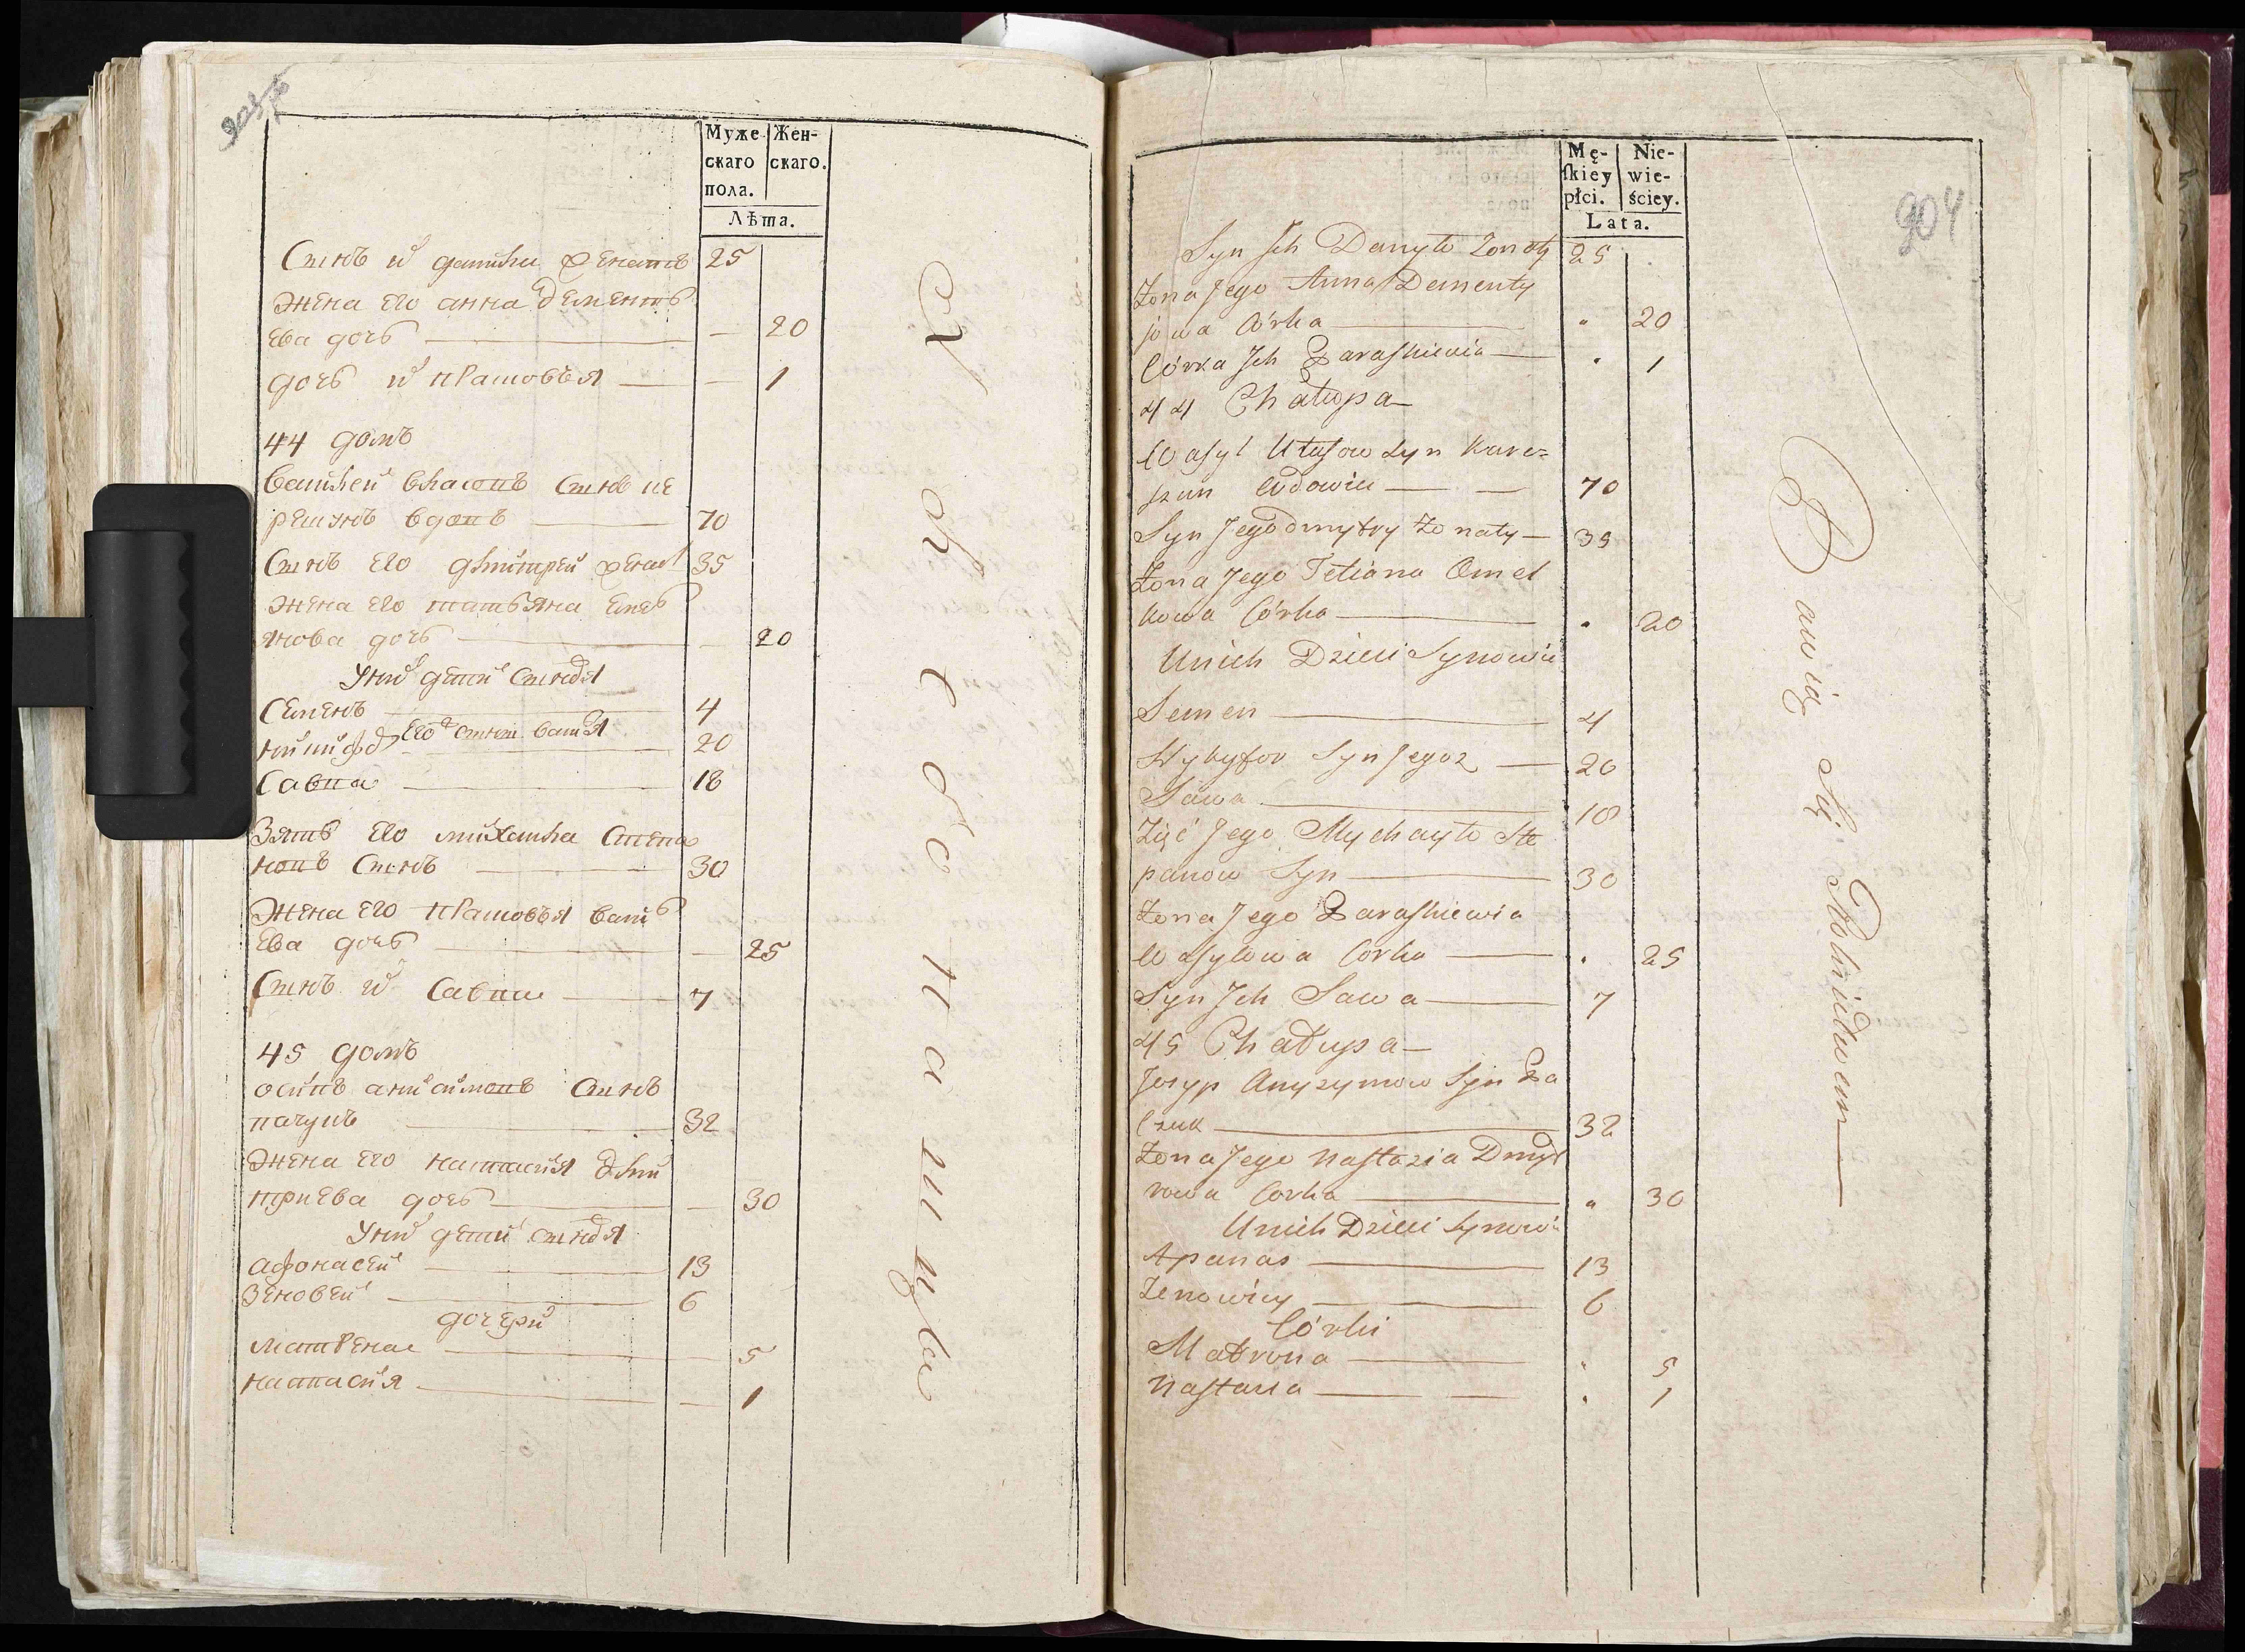 Муже-
скаго
пола.
Жен-
скаго.
Лѣта.
Сынъ их данила женатъ 25
Жена его анна дементь
ева дочь — 20
дочь их прасковья — 1
44 домъ
василей власовъ сынъ ка
решунъ вдовъ 70
Сынъ его дмитрей женат 35
жена его татьяна емель
янова дочь — 20
У них дети сыновья
Семенъ 4
его ж сыны василья 20
Савва 18
Зять его михайла степа
новъ сынъ 30
Жена его прасковья васил
ева дочь — 25
Сынъ их Савва 7
45 домъ
осипъ анисимовъ сынъ
пачукъ 32
жена его настасия дми
триева дочь — 30
У них дети сыновья
афонасей 13
Зеновей 6
дочери
матрена 5
настасия — 1
904
Mę-
ſkiey
płci.
Nie-
wie-
ściey.
Lata.
Syn Jch Danyło Żonaty 25
Żona Jego Anna Dementy
jowa Córka 20
Córka Jch Paraskiewia 1
44 Chałupa
Wasyl Własow Syn Kare=
szun Wdowiec 70
Syn Jego dmytry Żonaty 35
Żona Jego Tetiana Omel
kowa Córka 20
Unich Dzieci Synowie
Semen 4
Nykyfor Syn Jegoz 20
Sawa 18
Zięć Jego Mychayło Ste
panow Syn 30
Żona Jego Paraskiewia
Wasylowa Corka 25
Syn Jch Sawa 7
45 Chałupa
Josyp Anyzymow Syn Pa
czuk 32
Żona Jego Nastazia Dmyt
rowa Corka 30
Unich Dzieci Synowie
Apanas 13
Zenowiey 6
Córki
Matrona 5
Nastazia 1
Bawią Się Rolnictwem